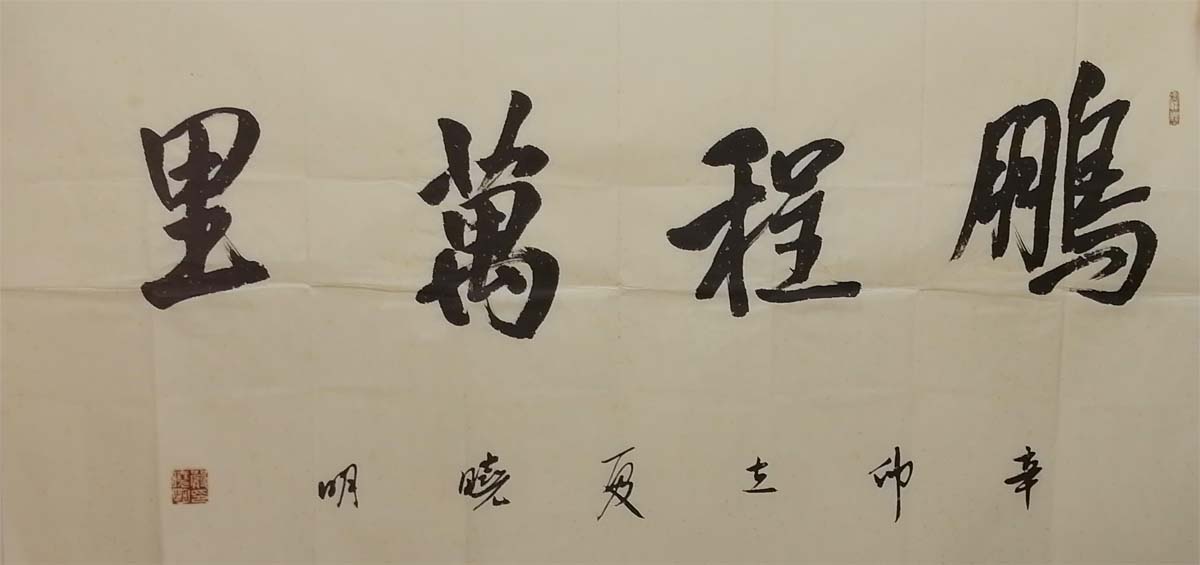 鵬程萬里
辛卯立夏曉明